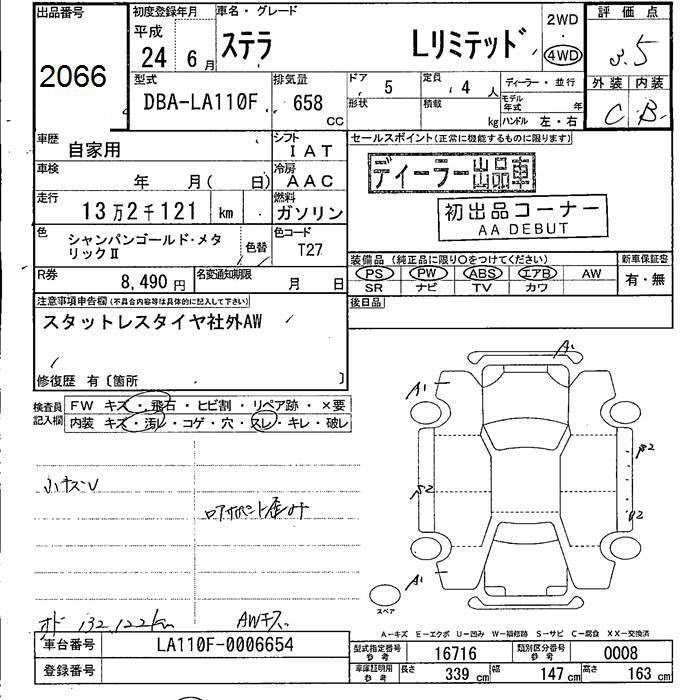 出品番号 初度登録年月 車名・グレード 2WD 評価点
平成
24 年 6 月 ステラ Lリミテッド 4WD 3.5
2066
型式 排気量 ドア 5 定員 4 人 ディーラー・並行 外装 内装
DBA-LA110F 658 CC 形状 積載 kg モデル年式 年 C B
ハンドル 左・右
車歴 自家用 シフト IAT セールスポイント(正常に機能するものに限ります)
車検 年 月( 日) 冷房 AAC ディーラー出品車
走行 13万2千121 km 燃料 ガソリン 初出品コーナー
AA DEBUT
色 シャンパンゴールド・メタリックⅡ 色替 色コード T27
装備品(純正品に限り○をつけてください) 新車保証書
R券 8,490 円 名変通知期限 月 日 PS PW ABS エアB AW 有・無
SR ナビ TV カワ
注意事項申告欄(不具合内容等は具体的に記入して下さい) 後日品
スタットレスタイヤ社外AW
修復歴 有〔箇所 〕
検査員記入欄 FW キズ・飛石・ヒビ割・リペア跡・×要
内装 キズ・汚レ・コゲ・穴・スレ・キレ・破レ
A1
A1
小キズU
B2
B2
B2
A1
オド 132,122km AWキズ
スペア
A-キズ E-エクボ U-凹み W-補修跡 S-サビ C-腐食 XX-交換済
車台番号 LA110F-0006654 型式指定番号 参考 16716 類別区分番号 参考 0008
登録番号 車庫証明用 参考 長さ 339 cm 幅 147 cm 高さ 163 cm